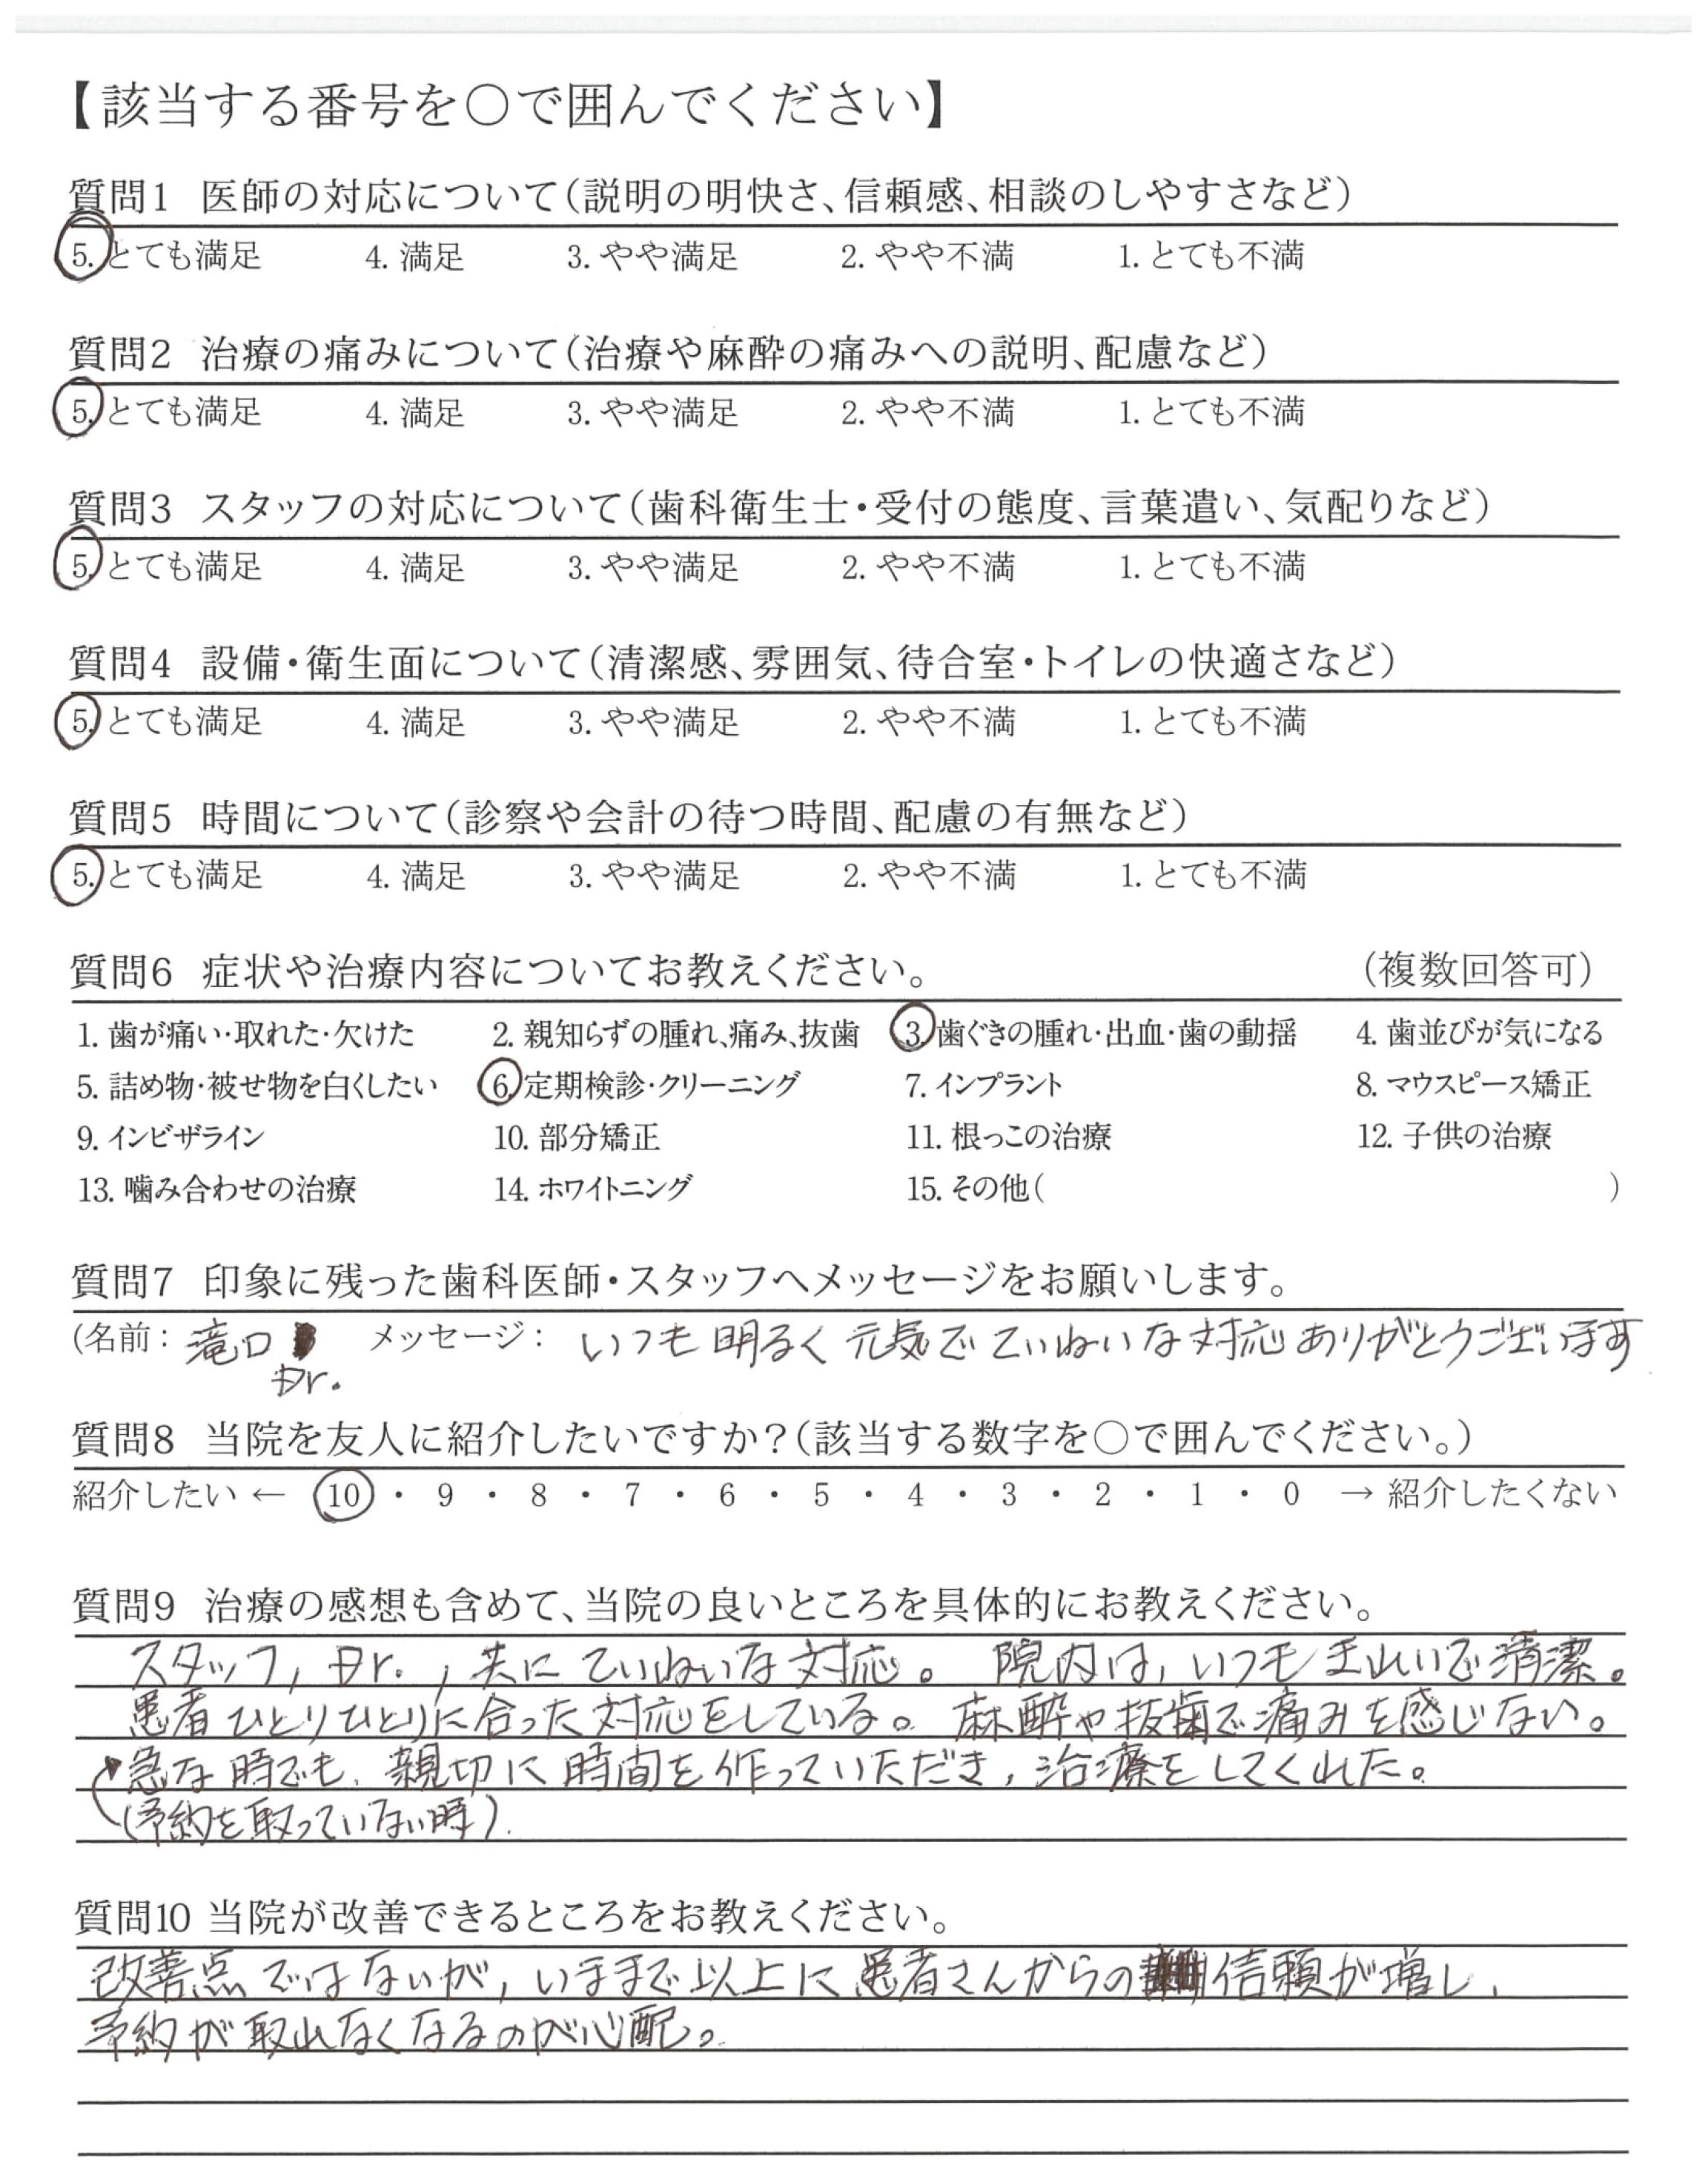 【該当する番号を○で囲んでください】
質問1 医師の対応について(説明の明快さ、信頼感、相談のしやすさなど)
5. とても満足 4. 満足 3. やや満足 2. やや不満 1. とても不満
質問2 治療の痛みについて(治療や麻酔の痛みへの説明、配慮など)
5. とても満足 4. 満足 3. やや満足 2. やや不満 1. とても不満
質問3 スタッフの対応について(歯科衛生士・受付の態度、言葉遣い、気配りなど)
5. とても満足 4. 満足 3. やや満足 2. やや不満 1. とても不満
質問4 設備・衛生面について(清潔感、雰囲気、待合室・トイレの快適さなど)
5. とても満足 4. 満足 3. やや満足 2. やや不満 1. とても不満
質問5 時間について(診察や会計の待つ時間、配慮の有無など)
5. とても満足 4. 満足 3. やや満足 2. やや不満 1. とても不満
質問6 症状や治療内容についてお教えください。 (複数回答可)
1. 歯が痛い・取れた・欠けた 2. 親知らずの腫れ、痛み、抜歯 3. 歯ぐきの腫れ・出血・歯の動揺 4. 歯並びが気になる
5. 詰め物・被せ物を白くしたい 6. 定期検診・クリーニング 7. インプラント 8. マウスピース矯正
9. インビザライン 10. 部分矯正 11. 根っこの治療 12. 子供の治療
13. 噛み合わせの治療 14. ホワイトニング 15. その他( )
質問7 印象に残った歯科医師・スタッフへメッセージをお願いします。
(名前: 滝口 メッセージ: いつも明るく元気でていねいな対応ありがとうございます
Dr.
質問8 当院を友人に紹介したいですか?(該当する数字を○で囲んでください。)
紹介したい ← 10 ・ 9 ・ 8 ・ 7 ・ 6 ・ 5 ・ 4 ・ 3 ・ 2 ・ 1 ・ 0 → 紹介したくない
質問9 治療の感想も含めて、当院の良いところを具体的にお教えください。
スタッフ, Dr., 共にていねいな対応。 院内は, いつもきれいで清潔。
患者ひとりひとりに合った対応をしている。麻酔や抜歯で痛みを感じない。
急な時でも、親切に時間を作っていただき, 治療をしてくれた。
(予約を取っていない時).
質問10 当院が改善できるところをお教えください。
改善点ではないが, いままで以上に患者さんからの信頼が増し、
予約が取れなくなるのが心配。